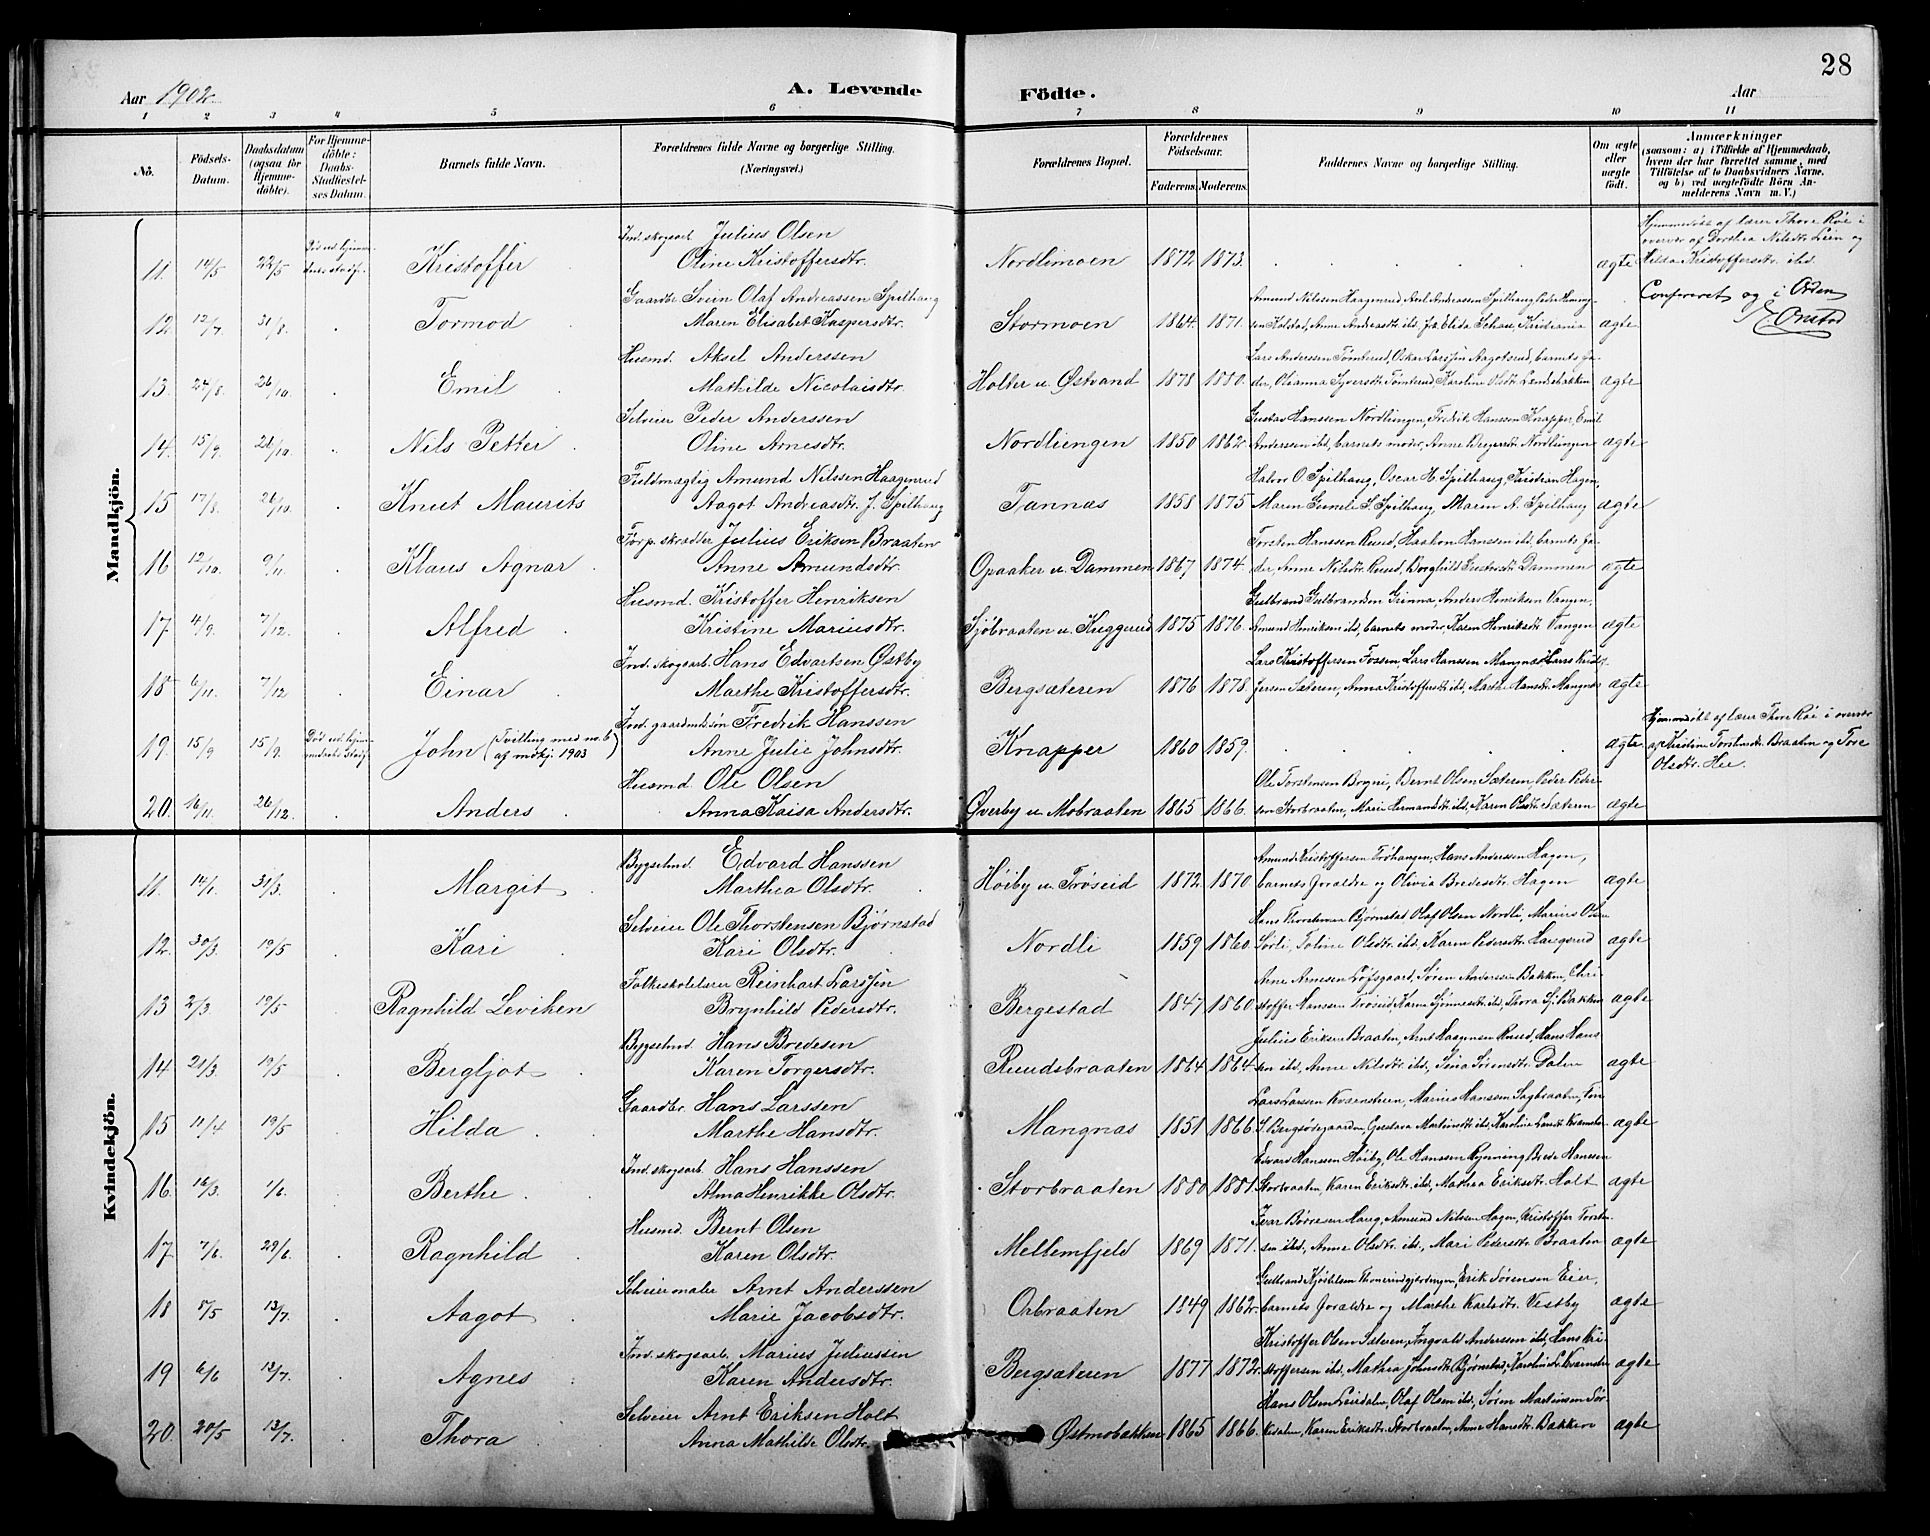 28
Aar 1902.
A. Levende Födte.
Aar
1 2 3 4 5 6 7 8 9 10 11
No.
Födsels-Datum.
Daabsdatum (ogsaa for Hjemme-döbte).
For Hjemme-döbte: Daabs-Stadfæstel-ses Datum.
Barnets fulde Navn.
Forældrenes fulde Navne og borgerlige Stilling. (Næringsvei.)
Forældrenes Bopæl.
Forældrenes Födselsaar.
Faderens. Moderens.
Faddernes Navne og borgerlige Stilling.
Om ægte eller uægte födt.
Anmærkninger (saasom: a) i Tilfælde af Hjemmedaab, hvem der har forrettet samme, med Tilföielse af to Daabsvidners Navne, og b) ved uægtefödte Börn An-melderens Navn m. V.)
Mandkjön.
11. 14/5 22/5 Kristoffer Ind. skogsarb. Julius Olsen
Oline Kristoffersdtr. Nordlimoen 1872 1873. ægte Hjemmedöbt af lærer Thore Röe i overvær af Dorthea Nilsdtr. Lien og Hilda Kristoffersdtr. ibd.
12. 12/7 31/8. Tormod Gaardbr. Svein Olaf Andreassen Spilhaug
Maren Elisabet Kaspersdtr. Stormoen 1864. 1871. ægte Confereret og i Orden
13. 24/8. 26/10. Emil Husmd. Aksel Anderssen
Mathilde Nicolaisdtr. Holter u. Østvand 1878 1880. Lars Anderssen Tömterud, Oskar Larssen Aagotsrud, barnets fa-
der, Olianna Syversdtr. Tömterud, Karoline Olsdtr. Lendebakken ægte
14. 15/9. 26/10. Nils Petter Selveier Peder Anderssen
Oline Arnesdtr. Nordliengen 1850 1862 Gustav Hanssen Nordliengen, Fredrik Hanssen Knapper, Emil
Anderssen ibd, barnets moder, Anne Bergersdtr. Nordliengen ægte
15 17/8. 26/10. Knut Maurits Fuldmægtig Amund Nilssen Haagenrud
Aagot Andreasdtr. f. Spilhaug Tannæs 1858 1875 Halvor O. Spilhaug, Oscar H. Spilhaug, Kristian Hagen,
Maren Gunele S. Spilhaug, Maren A. Spilhaug ægte
16 12/10. 9/11. Klaus Agnar Forp. skrædder Julius Eriksen Braaten
Anne Amundsdtr. Opaaker u. Dammen 1867 1874. Torsten Hanssen Ruud, Haakon Hanssen ibd, barnets fa-
der, Anne Nilsdtr. Ruud, Borghild Gustavsdtr. Dammen ægte
17. 4/9. 7/12. Alfred Husmd. Kristoffer Henriksen
Kristine Mariusdtr. Sjöbraaten u. Kuggerud 1875 1876. Gulbrand Gulbrandsen Grinna, Anders Henriksen Vangen,
Amund Henriksen ibd, barnets moder, Karen Henriksdtr. Vangen ægte
18 6/11. 7/12 Einar Ind. skogsarb. Hans Edvartsen Østby
Marthe Kristoffersdtr. Bergsæteren 1876 1878. Lars Kristoffersen Fossen, Lars Hanssen Mangnæs,
Anna Kristoffersdtr. ibd, Marthe Hansdtr. Mangnæs ægte
19. 15/9. 15/9. John (Tvilling med no. 6 af mdkj. 1903 Ind. gaardmdssön Fredrik Hanssen
Anne Julie Johnsdtr. Knapper 1860 1859. ægte Hjemmedöbt af lærer Thore Röe i overvær af Kristine Torstensdtr. Braaten og Tore Olsdtr. Hee.
20. 16/11. 26/12. Anders Husmd Ole Olsen
Anna Kaisa Andersdtr. Øverby u. Mobraaten 1865 1866. Ole Torstensen Bogni, Bernt Olsen Sæteren, Peder Peder-
sen Storbraaten, Marie Hermansdtr. ibd, Karen Olsdtr. Sæteren ægte
Kvindekjön.
11. 14/1. 31/3. Margit Bygselmd Edvard Hanssen
Marthea Olsdtr. Höiby u. Tröseid 1872 1870 Amund Kristoffersen Tröhaugen, Hans Anderssen Hagen,
barnets foraldre og Olivia Bredesdtr. Hagen ægte
12. 30/3. 19/5 Kari Selveier Ole Thorstensen Bjørnstad
Kari Olsdtr. Nordli 1859 1860. Hans Thorstensen Bjørnstad, Olaf Olsen Nordli, Marius Olsen
Sörli, Toline Olsdtr. ibd, Karen Pedersdtr. ægte
13 2/3. 19/5 Ragnhild Leviken Folkeskolelærer Reinhart Larssen
Brynhild Pedersdtr. Bergestad 1847 1860 Arne Arnesen Löfsgaard, Sören Anderssen Bakken, Chri-
stoffer Hanssen Tröseid, ægte
14 21/3. 19/5 Bergljot Bygselmd Hans Bredesen
Karen Torgersdtr. Ruudsbraaten 1864 1864. Julius Eriksen Braaten, Arnt Haagensen Ruud, Hans Hans-
sen ibd, Anne Nilsdtr. ibd, Sina Sörensdtr. Dalen ægte
15 11/4 19/5 Hilda Gaardbr. Hans Larssen
Marthe Hansdtr. Mangnæs 1851 1866. Lars Larssen Kvensteen, Marius Hanssen Sagbraaten,
Gustava Martinsdtr. ibd, ægte
16. 16/3. 1/6. Berthe Ind. skogsarb. Hans Hanssen
Alma Henrikke Olsdtr. Storbraaten 1880 1881. Edvard Hanssen Höiby, Ole Hanssen Rynning, Brede Hanssen
Storbraaten, Karen Eriksdtr. ibd, Mathea Eriksdtr. Holt ægte
17. 7/6. 29/6. Ragnhild Husmd. Bernt Olsen
Karen Olsdtr. Mellemfjeld 1869 1871. Ivar Börresen Haug, Amund Nilsen Hagen, Kristoffer Torsten-
sen ibd, Anne Olsdtr. ibd., Mari Pedersdtr. Braaten ægte
18 8/5 13/7. Aagot Selveier maler Arnt Anderssen
Marie Jacobsdtr. Orbraaten 1849 1862. Erik Sörensen Eier,
barnets foraldre og Marthe Karlsdtr. Vestby ægte
19 6/6 13/7. Agnes Ind. skogsarb. Marius Juliussen
Karen Andersdtr. Bergsæteren 1877 1872. Kristoffer Olsen Sæteren, Ingvald Anderssen ibd, Hans Kri-
stoffersen ibd, Mathea Johnsdtr. Bjørnstad, ægte
20. 20/5 13/7. Thora Selveier Arnt Eriksen Holt
Anna Mathilde Olsdtr. Østmobakken 1865 1866. Hans Olsen Leirdalen, Olaf Olsen ibd, Sören Martinsen
Karen Eriksdtr. Storbraaten, Anne Hansdtr. Bakken ægte